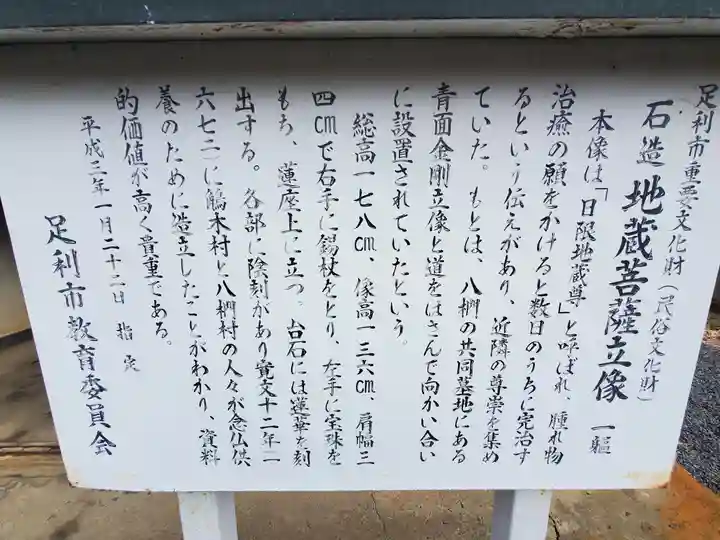 足利市重要文化財(民俗文化財)
石造 地蔵菩薩立像 一軀
本像は「日限地蔵尊」と呼ばれ、腫れ物
治癒の願をかけると数日のうちに完治す
るという伝えがあり、近隣の尊崇を集め
ていた。もとは、八椚の共同墓地にある
青面金剛立像と道をはさんで向かい合い
に設置されていたという。
総高一七八㎝、像高一三六㎝、肩幅三
四㎝で右手に錫杖をとり、左手に宝珠を
もち、蓮座上に立つ。台石には蓮華を刻
出する。各部に陰刻があり寛文十二年(一
六七二)に鵤木村と八椚村の人々が念仏供
養のために造立したことがわかり、資料
的価値が高く貴重である。
平成三年一月二十二日 指定
足利市教育委員会